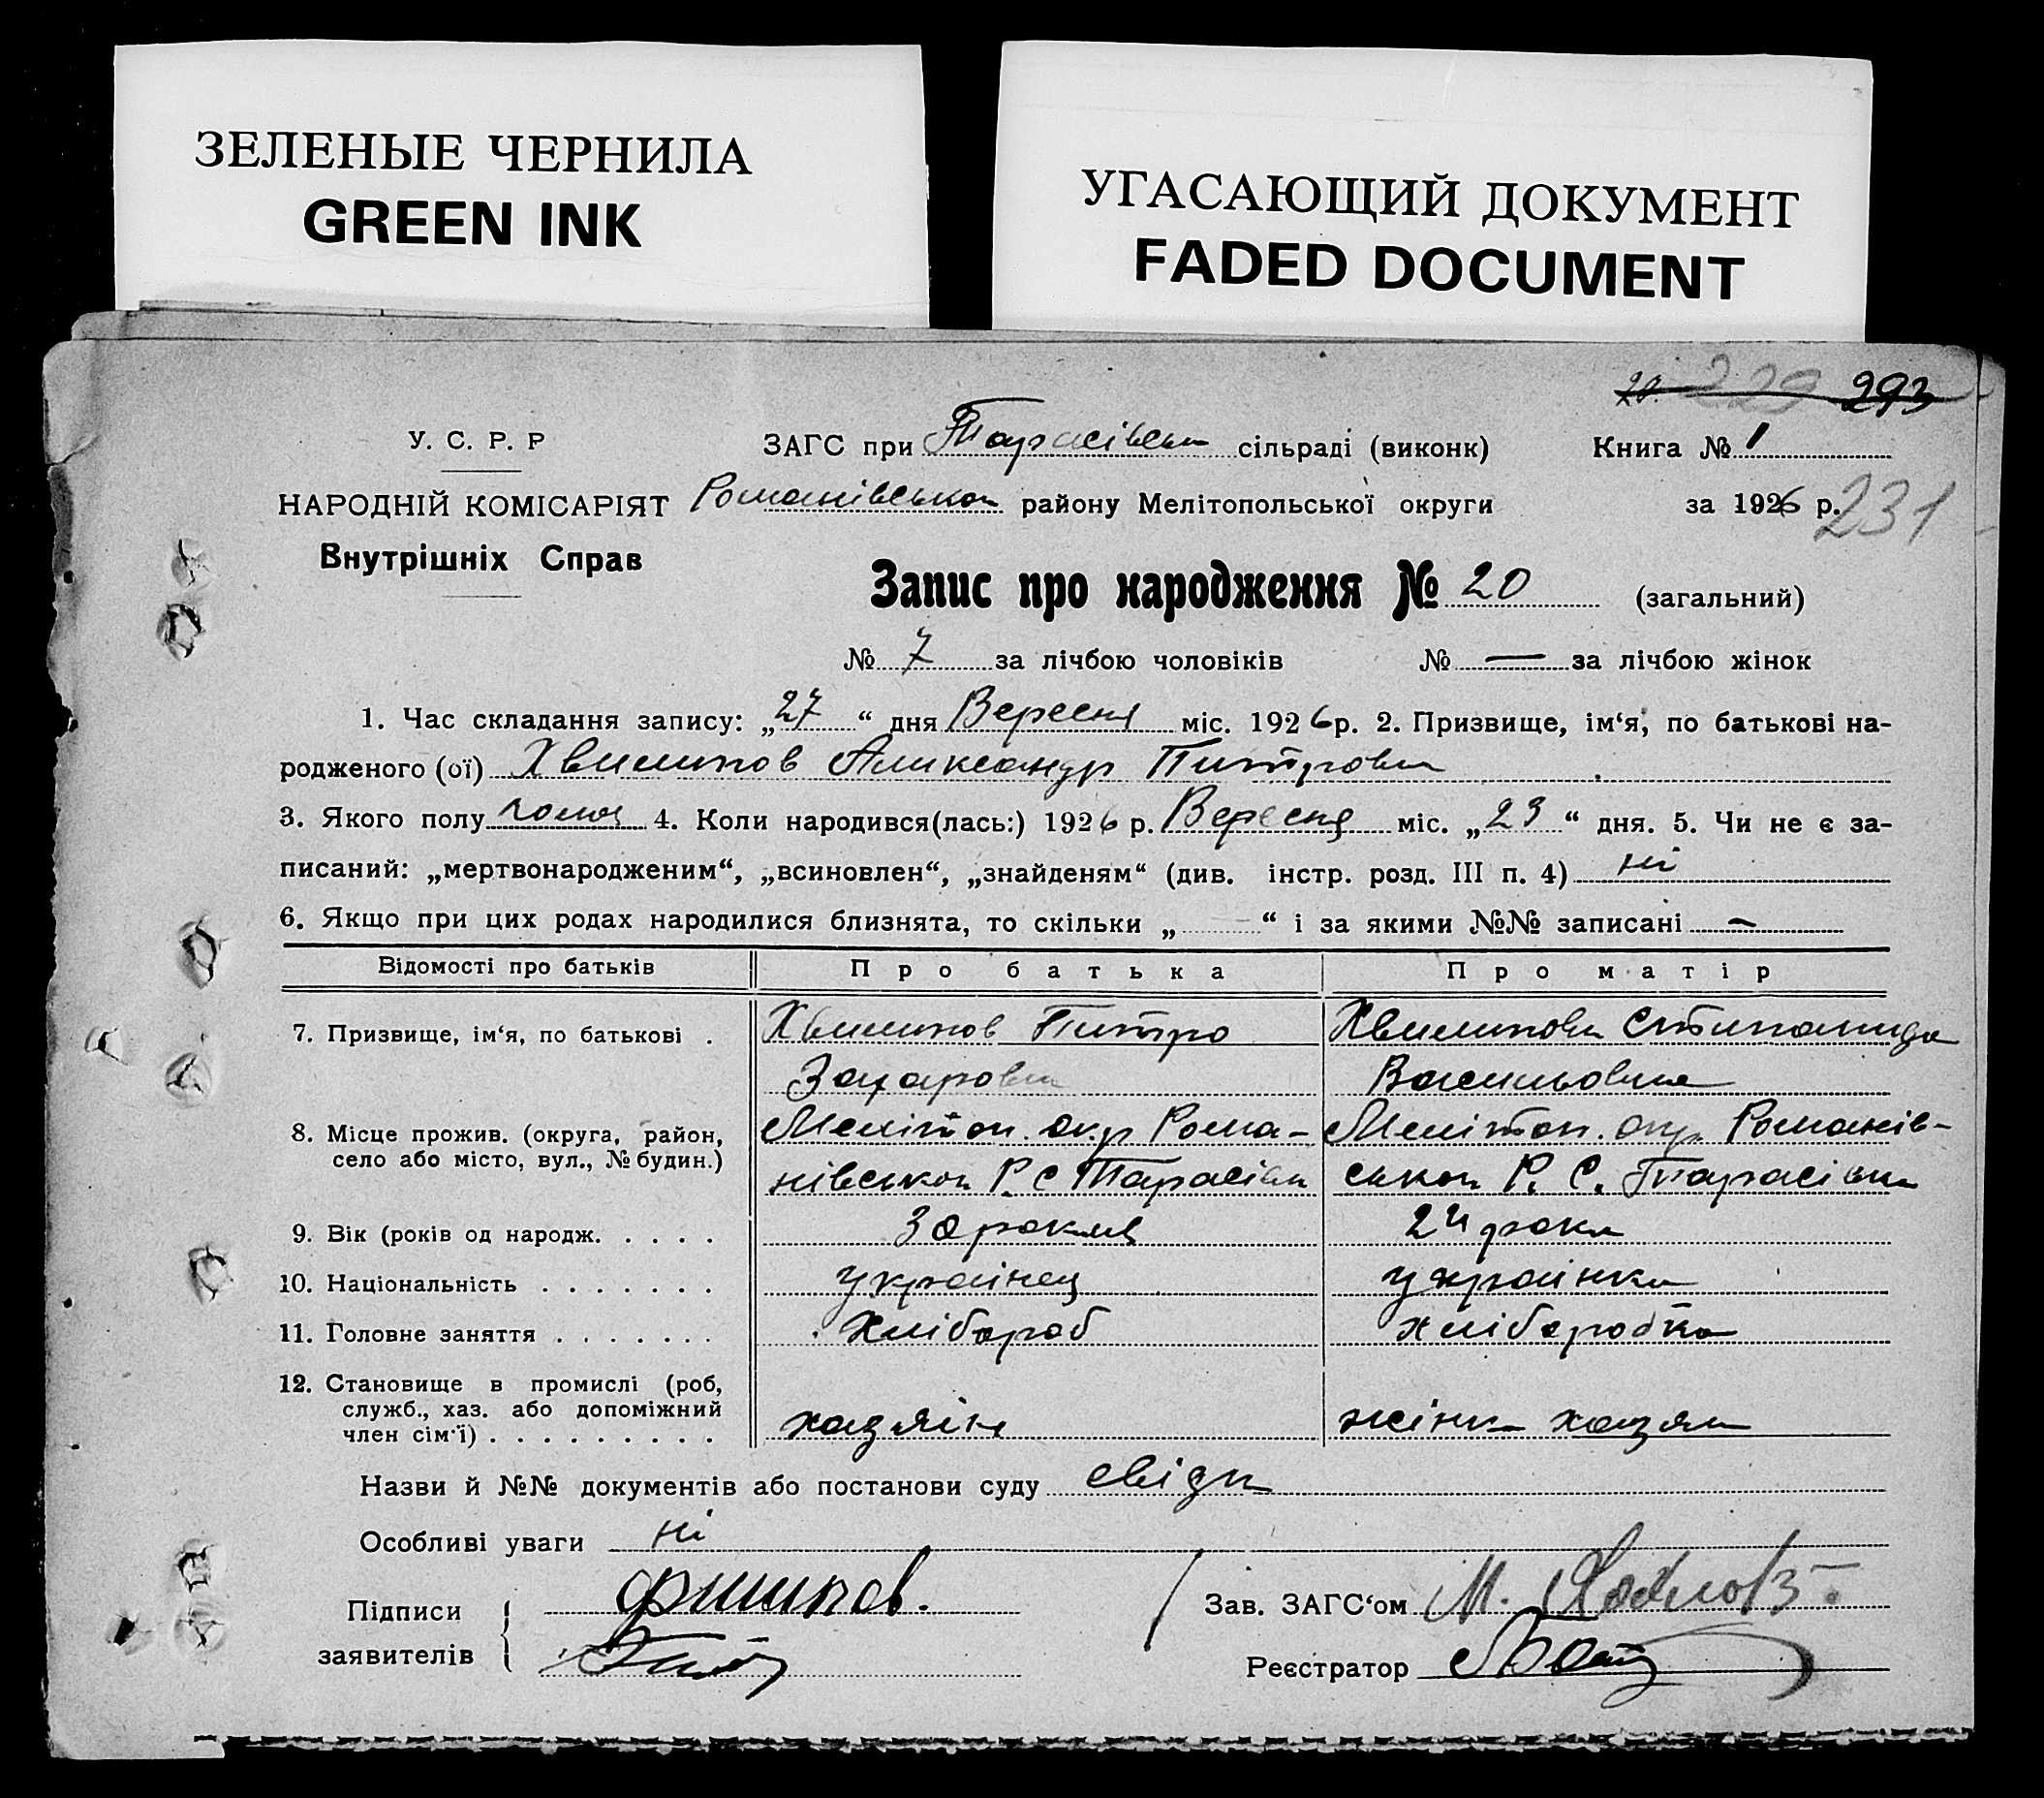 ЗЕЛЕНЫЕ ЧЕРНИЛА
GREEN INK
УГАСАЮЩИЙ ДОКУМЕНТ
FADED DOCUMENT
20 229 293
У. С. Р. Р ЗАГС при Тарасівськ сільраді (виконк) Книга № 1
НАРОДНІЙ КОМІСАРІЯТ Романівськои району Мелітопольської округи за 1926 р. 231
Внутрішніх Справ
Запис про народження № 20 (загальний)
№ 7 за лічбою чоловіків № — за лічбою жінок
1. Час складання запису: „27“ дня Вересня міс. 1926 р. 2. Призвище, ім‘я, по батькові на-
родженого (ої) Хвилипов Аликсандр Питрови
3. Якого полу чолов 4. Коли народився(лась:) 1926 р. Вересня міс. „23“ дня. 5. Чи не є за-
писаний: „мертвонародженим“, „всиновлен“, „знайденям“ (див. інстр. розд. III п. 4) ні
6. Якщо при цих родах народилися близнята, то скільки „ — “ і за якими №№ записані —
Відомості про батьків Про батька Про матір
7. Призвище, ім‘я, по батькові . Хвилипов Питро Хвилипова Стипанида
Захарови Васильовна
8. Місце прожив. (округа, район, Мелітоп. окр Рома- Мелітоп. окр. Романів-
село або місто, вул., № будин.) нівськои Р. С Тарасівки ськои Р. С. Тарасівки
9. Вік (років од народж. . . . . 30 рокив 24 роки
10. Національність . . . . . . . українец українка
11. Головне заняття . . . . . . . Хлібороб хліборобка
12. Становище в промислі (роб,
служб., хаз. або допоміжний
член сім‘ї) . . . . . . . . . хазяїн жінка хазяи
Назви й №№ документів або постанови суду свідк
Особливі уваги ні
Підписи Филипов. Зав. ЗАГС‘ом М.
заявителів Реєстратор